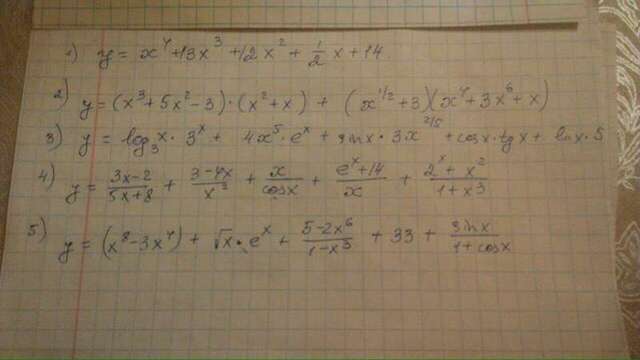 1) y = x⁴ + 13x³ + 12x² + 1/2 x + 14
2) y = (x³ + 5x² - 3) · (x² + x) + (x^1/2 + 3)(x⁴ + 3x⁶ + x)
3) y = log₃x · 3^x + 4x⁵ · e^x + sinx · 3x^2/5 + cosx · tgx + lnx · 5
4) y = (3x-2)/(5x+8) + (3-4x)/x³ + x/cosx + (e^x+14)/x + (2^x + x²)/(1+x³)
5) y = (x⁸ - 3x⁴) + √x · e^x + (5-2x⁶)/(1-x⁵) + 33 + sinx/(1+cosx)